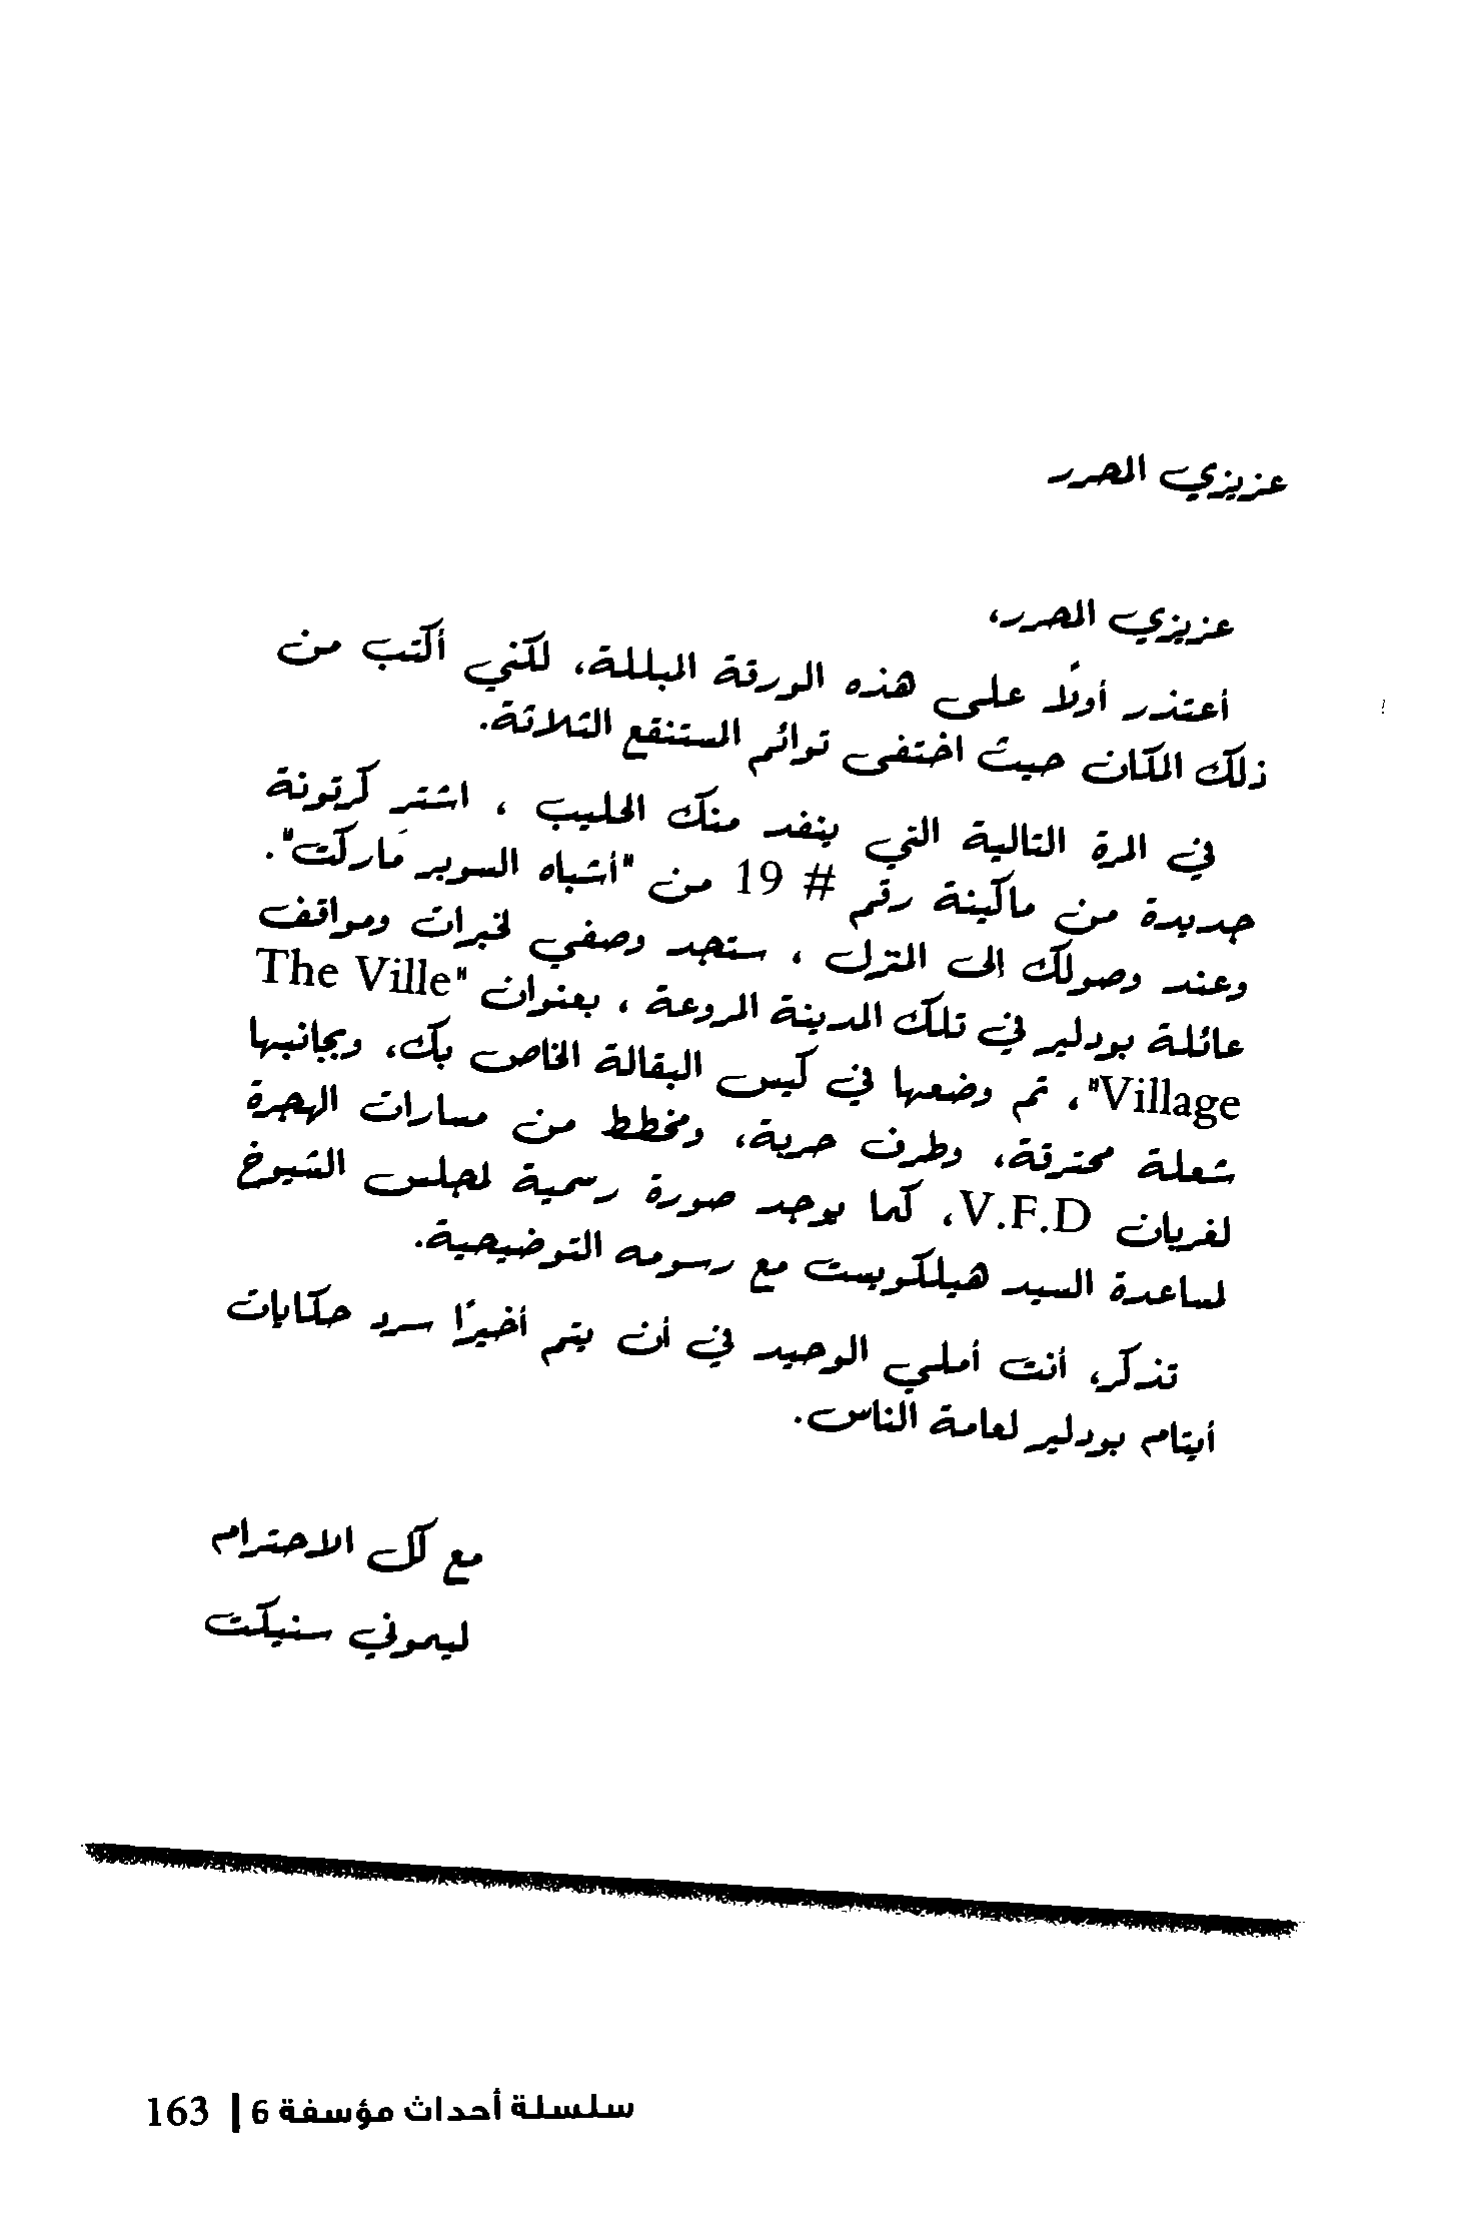 عزيزي المحرر
عزيزي المحرر،
أعتذر أولًا على هذه الورقة المبللة، لكني أكتب من
ذلك المكان حيث اختفى توائم المستنقع الثلاثة.
في المرة التالية التي ينفد منك الحليب ، اشترِ كرتونة
جديدة من ماكينة رقم # 19 من "أشباه السوبر مَاركت".
وعند وصولك إلى المنزل ، ستجد وصفي لخبرات ومواقف
عائلة بودلير في تلك المدينة المروعة ، بعنوان "The Ville
Village"، تم وضعها في كيس البقالة الخاص بك، وبجانبها
شعلة محترقة، وطرف حربة، ومخطط من مسارات الهجرة
لغربان V.F.D، كما يوجد صورة رسمية لمجلس الشيوخ
لمساعدة السيد هيلكويست مع رسومه التوضيحية.
تذكر، أنت أملي الوحيد في أن يتم أخيرًا سرد حكايات
أيتام بودلير لعامة الناس.
مع كل الاحترام
ليموني سنيكت
سلسلة أحداث مؤسفة 6 | 163